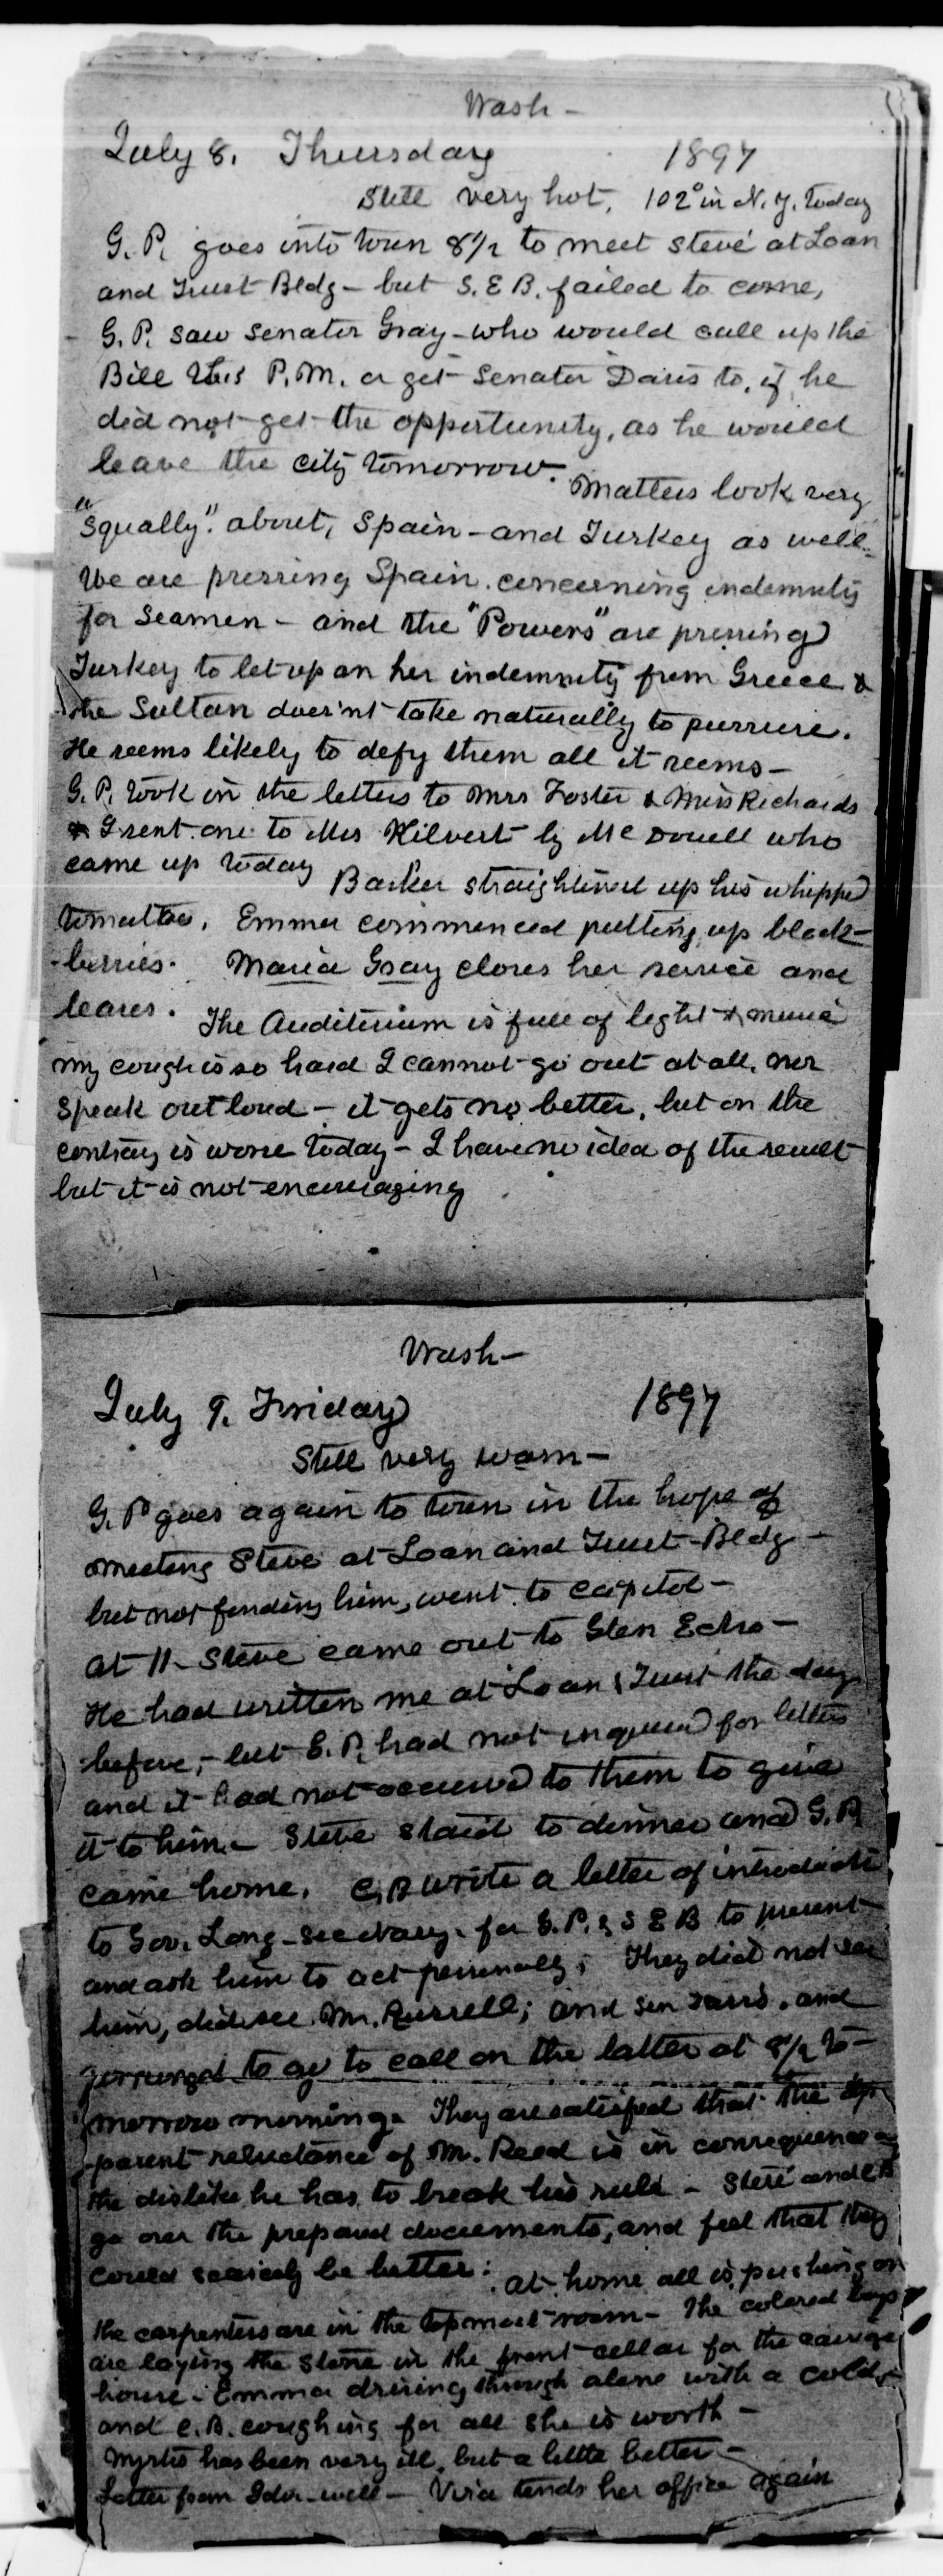 Wash -
July 8. Thursday 1897
Still very hot, 102° in N.Y. today
G. P. goes into town 8 1/2 to meet Steve at Loan
and Trust Bldg - but S. E B. failed to come,
G. P. saw Senator Gray - who would call up the
Bill this P.M. or get Senator Davis to, if he
did not get the opportunity, as he would
leave the city tomorrow.
Matters look very
"squally". about, Spain - and Turkey as well -
We are pressing Spain concerning indemnity
for Seamen - and the "Powers" are pressing
Turkey to let up on her indemnity from Greece &
the Sultan does'nt take naturally to pressure.
He seems likely to defy them all it seems -
G. P. took in the letters to Mrs Foster & Miss Richards
& I sent one to Mrs Hilvert by McDowell who
came up today
Barker straightened up his whipped
tomattoes. Emma commenced putting up black-
-berries. Maria Gray closes her service and
leaves.
The Auditorium is full of light & music
my cough is so hard I cannot go out at all, nor
speak out loud - it gets no better, but on the
contrary is worse today - I have no idea of the result
but it is not encouraging
Wash -
July 9. Friday 1897
Still very warm -
G. P goes again to town in the hope of
meeting Steve at Loan and Trust Bldg -
but not finding him, went to capitol -
at 11 - Steve came out to Glen Echo -
He had written me at Loan & Trust the day
before, - but G. P. had not inquired for letters
and it had not occurred to them to give
it to him. - Steve staid to dinner and G. P.
came home. C. B write a letter of introduction
to Gov. Long - secretary. for G. P. & S E B to present
and ask him to act personally; They did not see
him, did see Mr. Russell; and Sen Davis. and
arranged to go to call on the latter at 8 1/2 to-
morrow morning. They are satisfied that the ap
parent reluctance of Mr. Reed is in consequence of
the dislike he has to break his rule - Steve and C B
go over the prepared documents, and feel that they
could scarcely be better.
at home all is pushing on
the carpenters are in the topmost room - The colored boys
are laying the stone in the front cellar for the carriage
house. Emma driving through alone with a cold,
and C. B. coughing for all she is worth -
Myrtis has been very ill, but a little better -
Letter from Ida - well - Vira tends her office again